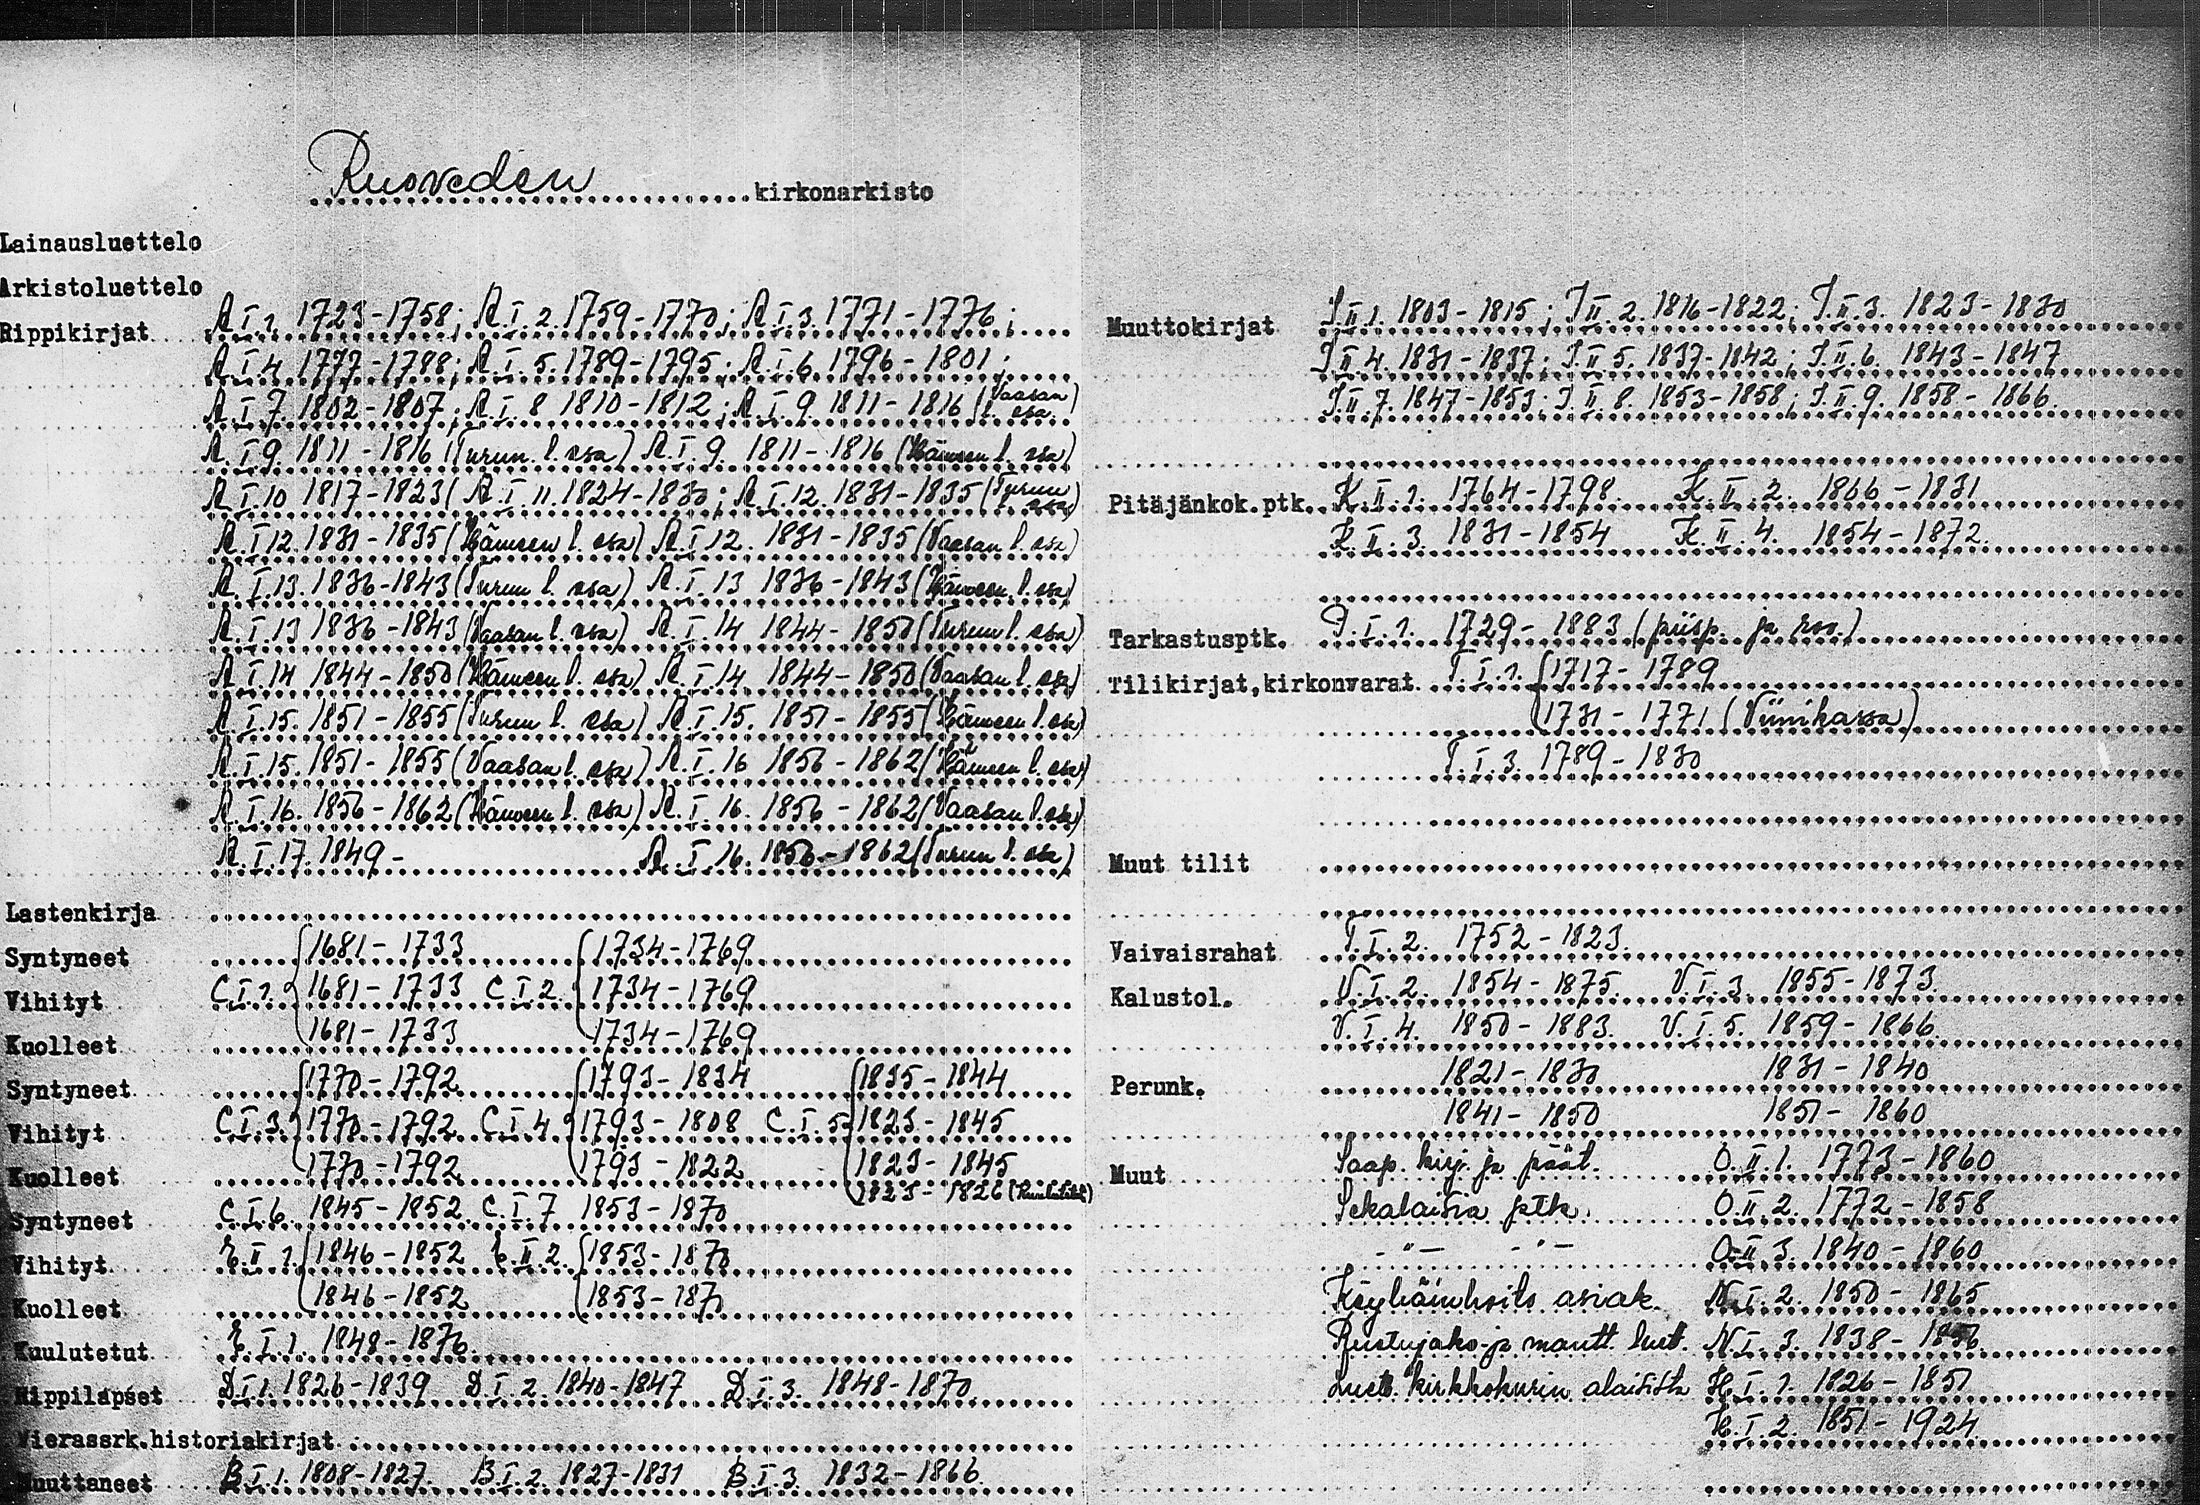 Ruoveden kirkonarkisto
Lainausluettelo
Arkistoluettelo
Rippikirjat A.I.1. 1723-1758; A.I.2. 1759-1770; A.I.3. 1771-1776;
A.I.4. 1777-1788; A.I.5. 1789-1795; A.I.6. 1796-1801;
A.I.7. 1802-1807; A.I.8 1810-1812; A.I.9. 1811-1816 (Vaasan l. osa)
A.I.9. 1811-1816 (Turun l. osa) A.I.9. 1811-1816 (Hämeen l. osa)
A.I.10 1817-1823( A.I.11. 1824-1830; A.I.12. 1831-1835 (Turun osa)
A.I.12. 1831-1835 (Hämeen l. osa) A.I.12. 1831-1835 (Vaasan l. osa)
A.I.13. 1836-1843 (Turun l. osa) A.I.13 1836-1843 (Hämeen l. osa)
A.I.13 1836-1843 (Vaasan l. osa) A.I.14 1844-1850 (Turun l. osa)
A.I.14 1844-1850 (Hämeen l. osa) A.I.14. 1844-1850 (Vaasan l. osa)
A.I.15. 1851-1855 (Turun l. osa) A.I.15. 1851-1855 (Hämeen l. osa)
A.I.15. 1851-1855 (Vaasan l. osa) A.I.16 1856-1862 (Hämeen l. osa)
A.I.16. 1856-1862 (Hämeen l. osa) A.I.16. 1856-1862 (Vaasan l. osa)
A.I.17. 1849- A.I.16. 1856-1862 (Turun l. osa)
Lastenkirja
Syntyneet 1681-1733 1734-1769
Vihityt C.I.1. 1681-1733 C.I.2. 1734-1769
Kuolleet 1681-1733 1734-1769
Syntyneet 1770-1792 1793-1834 1835-1844
Vihityt C.I.3. 1770-1792 C.I.4. 1793-1808 C.I.5. 1823-1845
Kuolleet 1770-1792 1793-1822 1823-1845
1823-1826 (Kuulutetut)
Syntyneet C.I.6. 1845-1852 C.I.7 1853-1870
Vihityt E.II.1. 1846-1852 E.II.2. 1853-1870
Kuolleet 1846-1852 1853-187
Kuulutetut E.I.1. 1848-1876
Rippilapset D.I.1. 1826-1839 D.I.2. 1840-1847 D.I.3. 1848-1870
Vierassrk.historiakirjat
Muuttaneet B.I.1. 1808-1827 B.I.2. 1827-1831 B.I.3 1832-1866
Muuttokirjat J.II.1. 1803-1815; J.II.2. 1816-1822; J.II.3. 1823-1830
J.II.4. 1831-1837; J.II.5. 1837-1842; J.II.6. 1843-1847
J.II.7. 1847-1853; J.II.8. 1853-1858; J.II.9. 1858-1866
Pitäjänkok.ptk. K.II.1. 1764-1798. K.II.2. 1866-1831
K.II.3. 1831-1854 K.II.4. 1854-1872
Tarkastusptk. 1729-1883 (piisp. ja rov.)
Tilikirjat,kirkonvarat T.I.1. 1717-1789
1731-1771 (Viinikassa)
T.I.3. 1789-1830
Muut tilit
Vaivaisrahat T.I.2. 1752-1823.
Kalustol. V.I.2. 1854-1875. V.I.3. 1855-1873.
V.I.4. 1850-1883. V.I.5. 1859-1866.
Perunk. 1821-1830 1831-1840
1841-1850 1851-1860
Muut Saap. kirj. ja päät. O.II.1. 1773-1860
Sekalaisia ptk. O.II.2. 1772-1858
-"- -"- O.II.3. 1840-1860
Köyhäinhoito asiak. N.I.2. 1850-1865
Ruotujako- ja mantt. luet. N.I.3. 1838-
Luett. kirkkokurin alaisista H.I.1. 1826-1851
H.I.2. 1851-1924